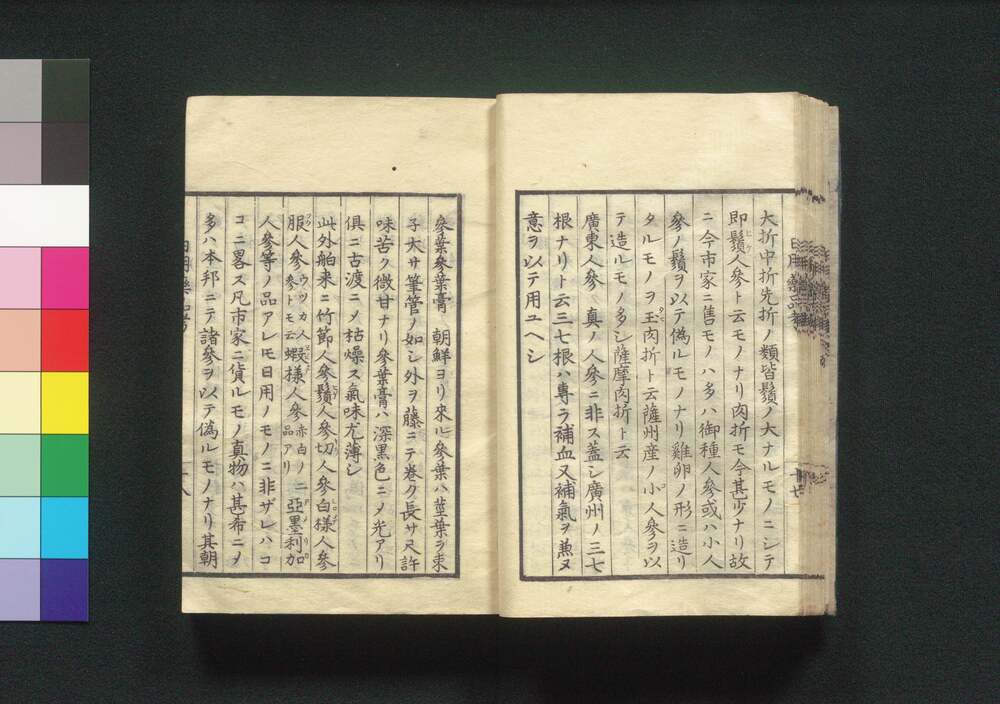 大折中折先折ノ類皆鬚ノ大ナルモノニシテ
即鬚人參ト云モノナリ肉折モ今甚少ナリ故
ニ今市家ニ售モノハ多ハ御種人參或ハ小人
參ノ鬚ヲ以テ偽ルモノナリ雞卵ノ形ニ造リ
タルモノヲ玉肉折ト云薩州産ノ小人參ヲ以
テ造ルモノ多シ薩摩肉折ト云
廣東人參 真ノ人參ニ非ス蓋シ廣州ノ三七
根ナリト云三七根ハ專ラ補血又補氣ヲ兼ヌ
意ヲ以テ用ユヘシ
參葉參葉膏 朝鮮ヨリ來ル參葉ハ莖葉ヲ束
子大サ筆管ノ如シ外ヲ藤ニテ巻ク長サ尺許
味苦ク微甘ナリ參葉膏ハ深黒色ニメ光アリ
俱ニ古渡ニメ枯燥ス氣味尤薄シ
此外舶来ニ竹節人參鬚人參切人參白様人參
服人參 參トモ云 蝦様人參 赤白ノ二品アリ 亞墨利加
人參等ノ品アレ𪜈日用ノモノニ非ザレハコ
コニ畧ス凡市家ニ貨ルモノ真物ハ甚希ニメ
多ハ本邦ニテ諸參ヲ以テ偽ルモノナリ其朝
日用藥品考
十七